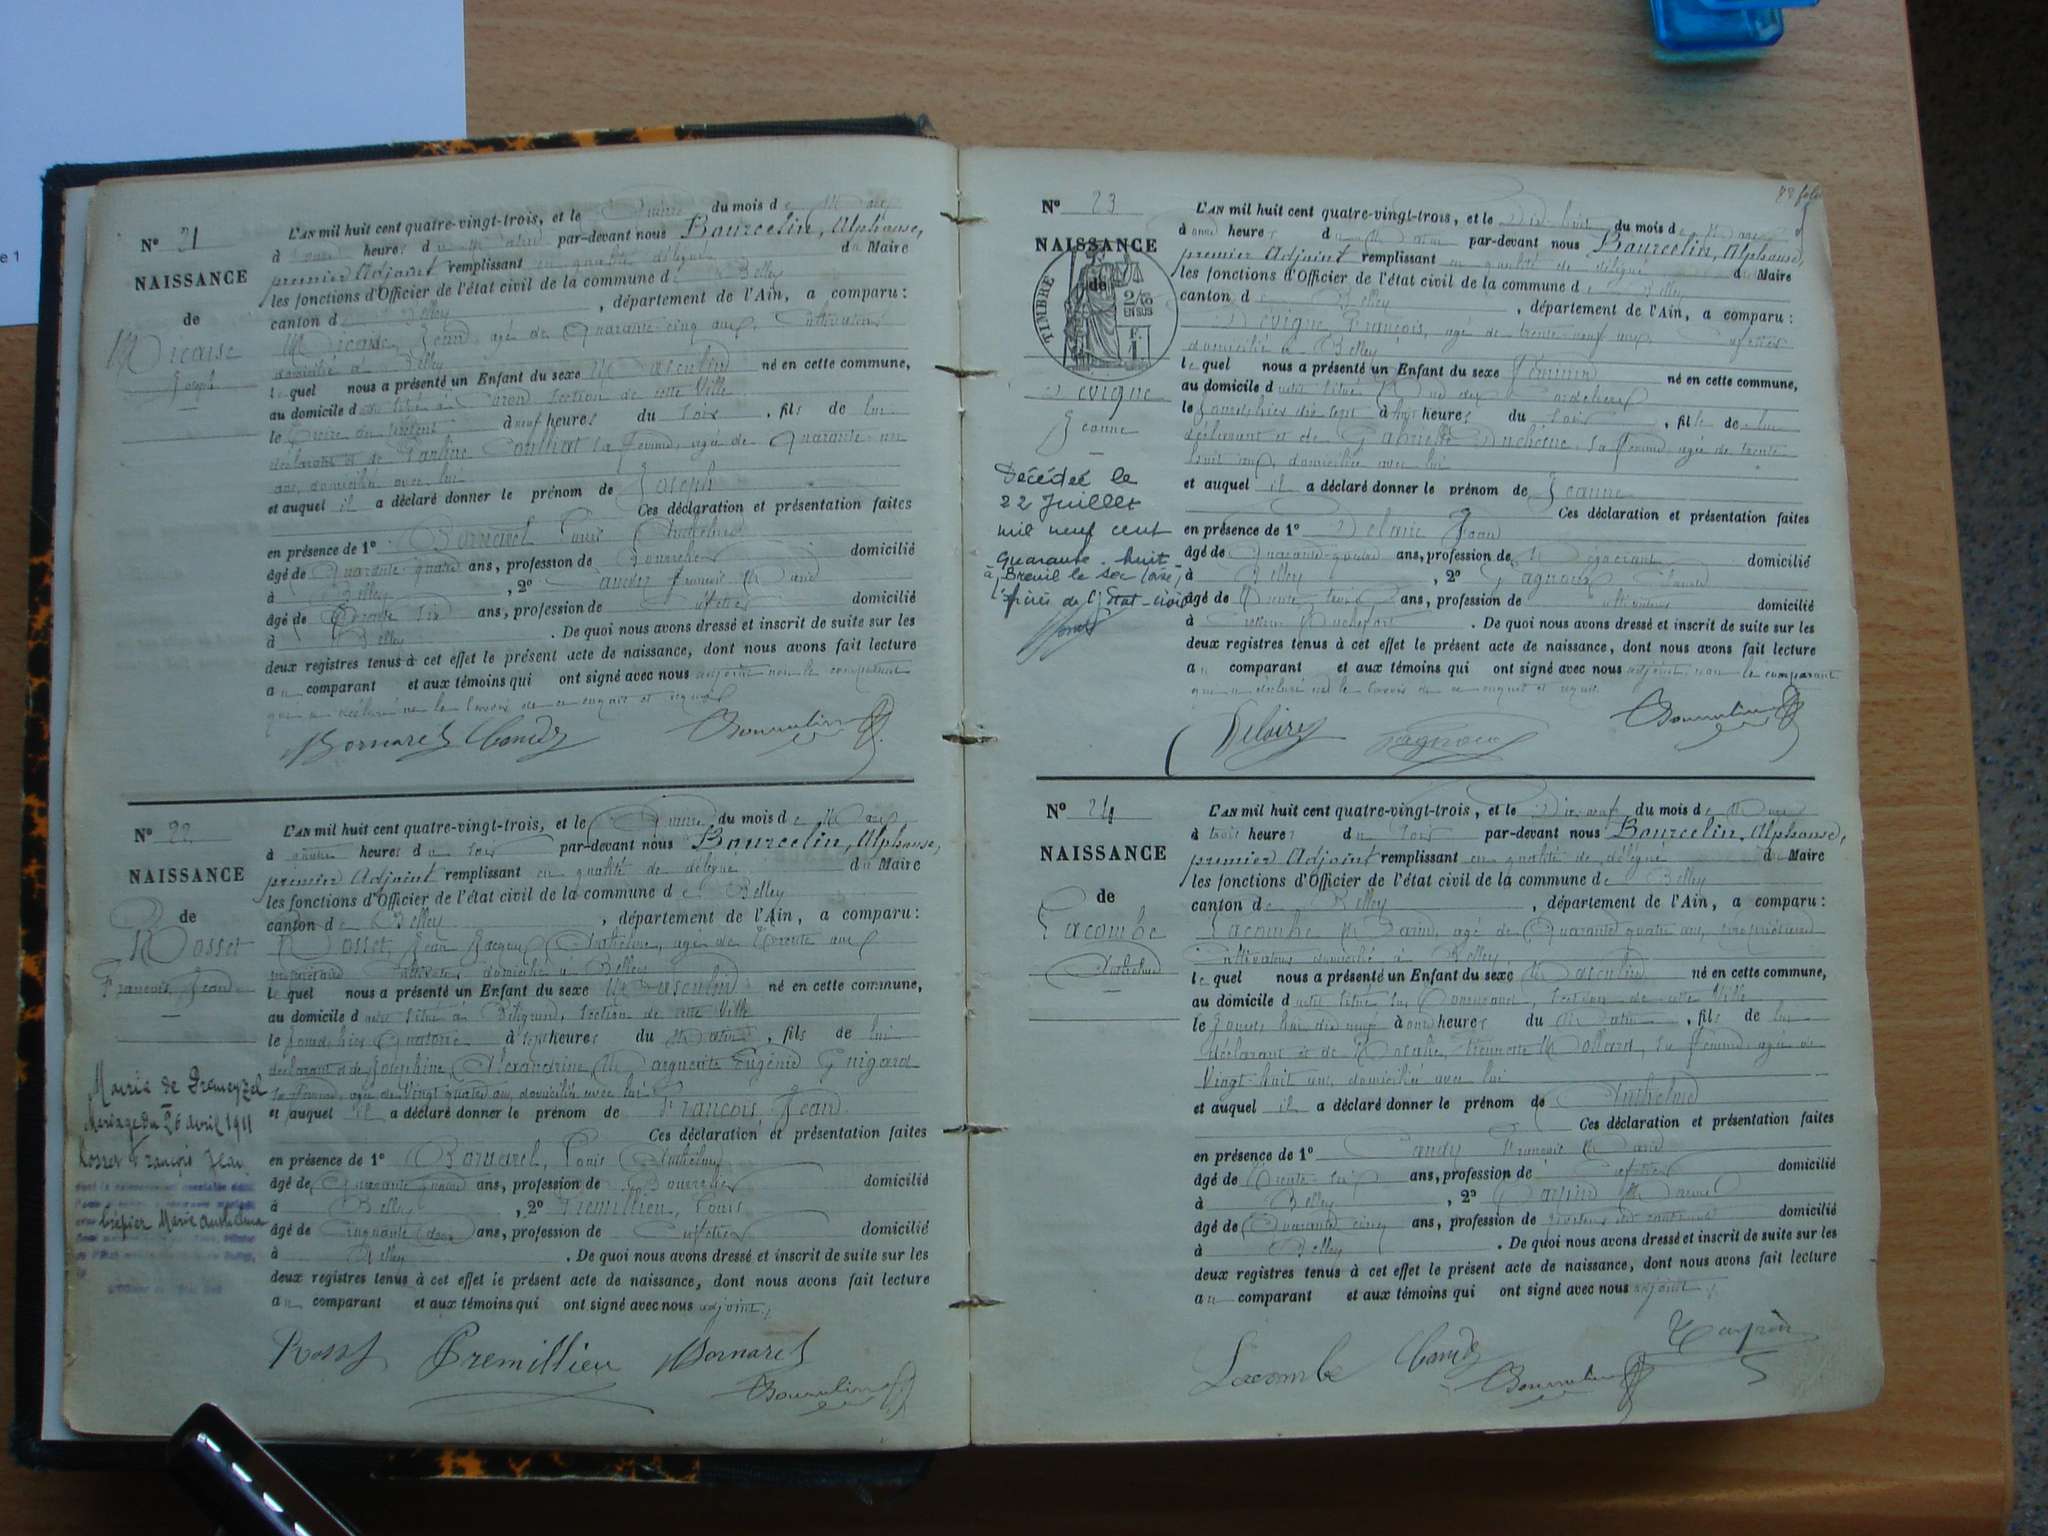 e 1
N° 21
NAISSANCE
de
Micaise
Joseph
L'AN mil huit cent quatre-vingt-trois, et le Quinze du mois de Mars
à heures du Matin par-devant nous Bourcelin, Alphonse,
premier Adjoint remplissant en qualité de délégué du Maire
les fonctions d'Officier de l'état civil de la commune de Belley
canton de Belley, département de l'Ain, a comparu :
Micaise Jean, agé de Quarante cinq ans, Cultivateur
domicilié à Belley
lequel nous a présenté un Enfant du sexe Masculin né en cette commune,
au domicile d situé à section de cette Ville
le Treize du présent à neuf heures du soir, fils de lui
déclarant et de Pauline sa femme, agée de Quarante un
ans, domiciliée avec lui
et auquel il a déclaré donner le prénom de Joseph
Ces déclaration et présentation faites
en présence de 1° Bornarel Louis Anthelme
âgé de Quarante quatre ans, profession de Bourrelier domicilié
à Belley, 2° Caudy François Marie
âgé de Trente six ans, profession de Cafetier domicilié
à Belley. De quoi nous avons dressé et inscrit de suite sur les
deux registres tenus à cet effet le présent acte de naissance, dont nous avons fait lecture
au comparant et aux témoins qui ont signé avec nous adjoint non le comparant
qui a déclaré ne le savoir de ce enquis et requis
Bornarel Caudy Bourcelin
N° 22
NAISSANCE
de
Rosset
François Jean
Mairie de Premeyzel
Mariage du 26 avril 1911
Rosset François Jean
Crépier Marie Anthelma
L'AN mil huit cent quatre-vingt-trois, et le Quinze du mois de Mars
à quatre heures du soir par-devant nous Bourcelin, Alphonse,
premier Adjoint remplissant en qualité de délégué du Maire
les fonctions d'Officier de l'état civil de la commune de Belley
canton de Belley, département de l'Ain, a comparu :
Rosset Jean Jacques Anthelme, agé de Trente ans
propriétaire Cultivateur domicilié à Belley
lequel nous a présenté un Enfant du sexe Masculin né en cette commune,
au domicile d situé à section de cette Ville
le Jour d'hier Quatorze à sept heures du Matin, fils de lui
déclarant et de Joséphine Alexandrine Marguerite Eugénie Guigard
sa femme, agée de Vingt quatre ans, domiciliée avec lui
et auquel il a déclaré donner le prénom de François Jean
Ces déclaration et présentation faites
en présence de 1° Bornarel, Louis Anthelme
âgé de Quarante quatre ans, profession de Bourrelier domicilié
à Belley, 2° Premillieu, Louis
âgé de Cinquante deux ans, profession de Cafetier domicilié
à Belley. De quoi nous avons dressé et inscrit de suite sur les
deux registres tenus à cet effet le présent acte de naissance, dont nous avons fait lecture
au comparant et aux témoins qui ont signé avec nous adjoint
Rosset Premillieu Bornarel
Bourcelin
N° 23
NAISSANCE
de
TIMBRE
2/10 EN SUS
F. 1
Devigne
Jeanne
Décédée le
22 Juillet
mil neuf cent
quarante-huit
à Breuil le Sec (Oise)
L'Officier de l'Etat-civil
L'AN mil huit cent quatre-vingt-trois, et le Dix-huit du mois de Mars
à onze heures du Matin par-devant nous Bourcelin, Alphonse,
premier Adjoint remplissant en qualité de délégué du Maire
les fonctions d'Officier de l'état civil de la commune de Belley
canton de Belley, département de l'Ain, a comparu :
Devigne, François, agé de trente neuf ans, Cafetier
domicilié à Belley
lequel nous a présenté un Enfant du sexe Féminin né en cette commune,
au domicile d situé Rue des Cordeliers
le Jour d'hier dix sept à heures du soir, fille de lui
déclarant et de Gabrielle Duchêne, sa femme, agée de trente
huit ans, domiciliée avec lui
et auquel il a déclaré donner le prénom de Jeanne
Ces déclaration et présentation faites
en présence de 1° Jean
âgé de Quarante quatre ans, profession de Négociant domicilié
à Belley, 2° Gagnoux Claude
âgé de ans, profession de Cultivateur domicilié
à . De quoi nous avons dressé et inscrit de suite sur les
deux registres tenus à cet effet le présent acte de naissance, dont nous avons fait lecture
au comparant et aux témoins qui ont signé avec nous adjoint non le comparant
qui a déclaré ne le savoir de ce enquis et requis
Bourcelin
N° 24
NAISSANCE
de
Lacombe
Anthelme
L'AN mil huit cent quatre-vingt-trois, et le Dix-neuf du mois de Mars
à trois heures du soir par-devant nous Bourcelin, Alphonse,
premier Adjoint remplissant en qualité de délégué du Maire
les fonctions d'Officier de l'état civil de la commune de Belley
canton de Belley, département de l'Ain, a comparu :
Lacombe Marin, agé de Quarante quatre ans, propriétaire
Cultivateur domicilié à Belley
lequel nous a présenté un Enfant du sexe Masculin né en cette commune,
au domicile d situé section de cette Ville
le Jour d'hui dix neuf à onze heures du Matin, fils de lui
déclarant et de Rosalie, Françoise Mollard, sa femme, agée de
Vingt huit ans, domiciliée avec lui
et auquel il a déclaré donner le prénom de Anthelme
Ces déclaration et présentation faites
en présence de 1° Caudy François Marie
âgé de Trente six ans, profession de Cafetier domicilié
à Belley, 2°
âgé de Quarante cinq ans, profession de domicilié
à Belley. De quoi nous avons dressé et inscrit de suite sur les
deux registres tenus à cet effet le présent acte de naissance, dont nous avons fait lecture
au comparant et aux témoins qui ont signé avec nous adjoint
Lacombe Caudy Bourcelin